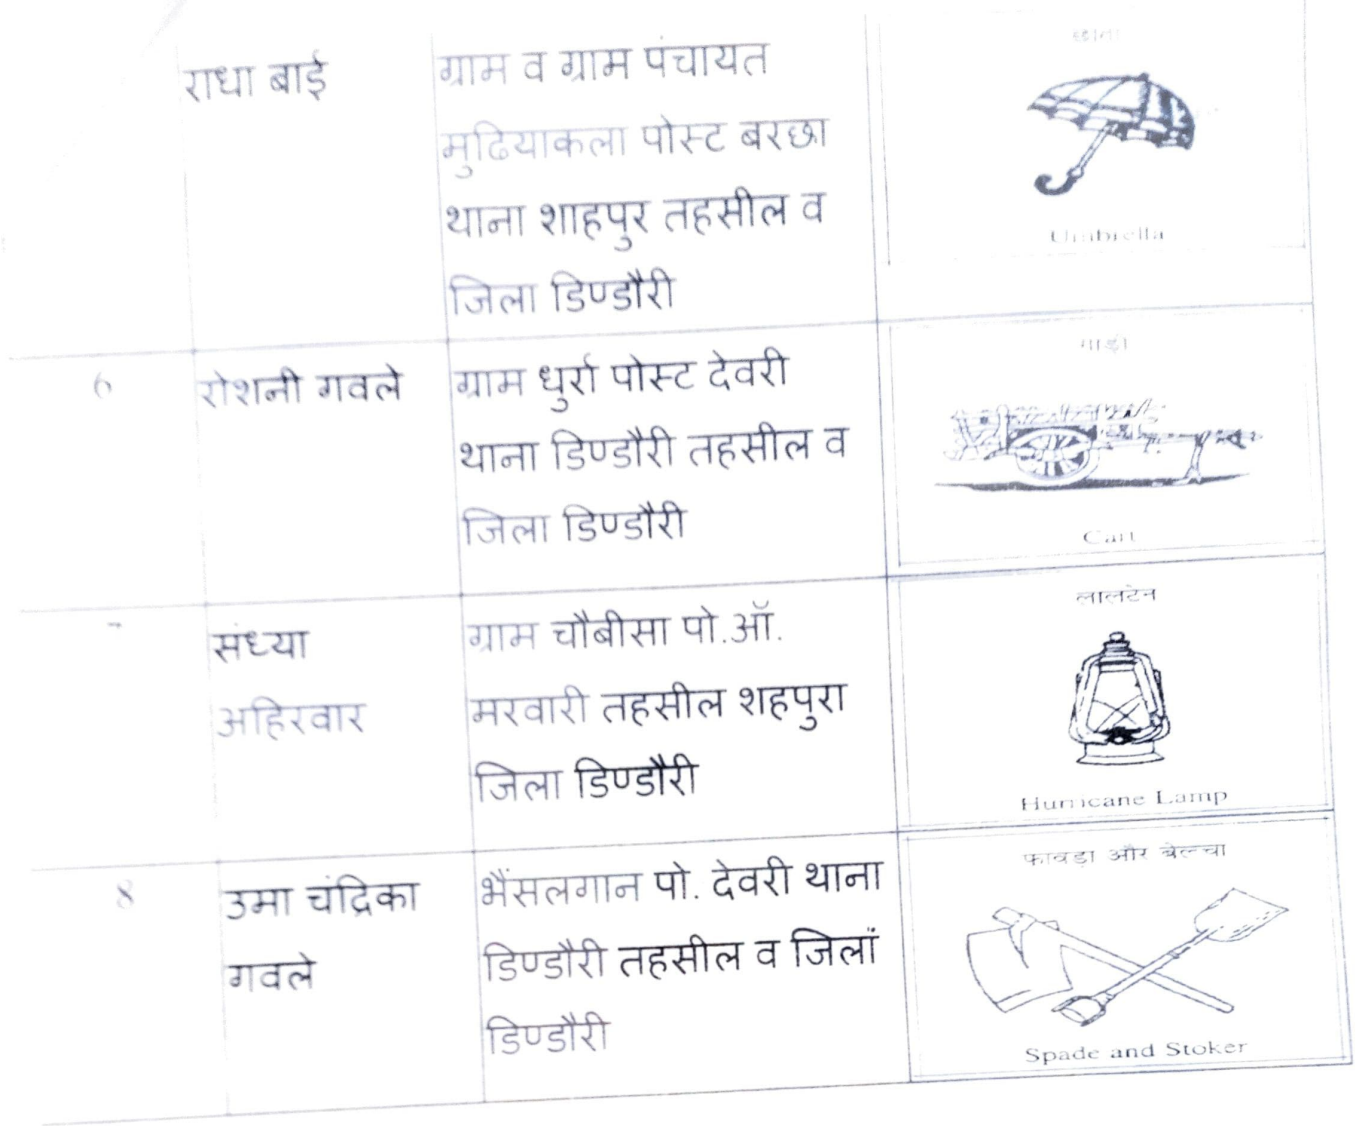 राधा बाई
ग्राम व ग्राम पंचायत
मुढियाकला पोस्ट बरछा
थाना शाहपुर तहसील व
जिला डिण्डौरी
छाता
Umbrella
6
रोशनी गवले
ग्राम धुर्रा पोस्ट देवरी
थाना डिण्डौरी तहसील व
जिला डिण्डौरी
गाड़ी
Cart
संध्या
अहिरवार
ग्राम चौबीसा पो.ऑ.
मरवारी तहसील शहपुरा
जिला डिण्डौरी
लालटेन
Hurricane Lamp
8
उमा चंद्रिका
गवले
भैंसलगान पो. देवरी थाना
डिण्डौरी तहसील व जिलां
डिण्डौरी
फावड़ा और बेल्चा
Spade and Stoker